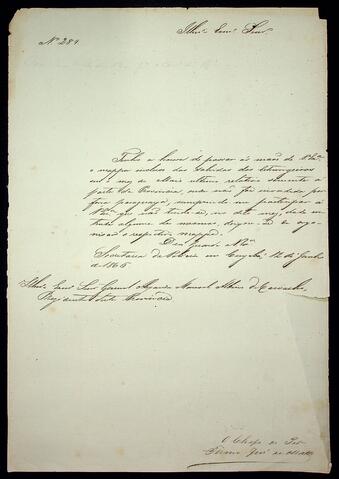 Nº 281.
Illmº. Exmº. Snr.
Tenho a honra de passar ás mãos de V. Exª.
o mappa incluso das sahidas dos estrangeiros
em o mez de Maio ultimo relativo sómente á
parte da Provincia, que não foi invadida por
força paraguaya, cumprindo-me participar á
V. Exª. que não tendo-se, no dito mez, dado en-
trada alguma dos mesmos, deixou-se de orga-
nisar o respectivo mappa.
Deos Guarde a V. Exª.
Secretaria da Policia em Cuyabá, 12 de Junho
de 1865
Illmº. Exmº. Snr. General Manoel Albino de Carvalho
Presidente desta Provincia
O Chefe de Pol.
Firmo José de Mattos